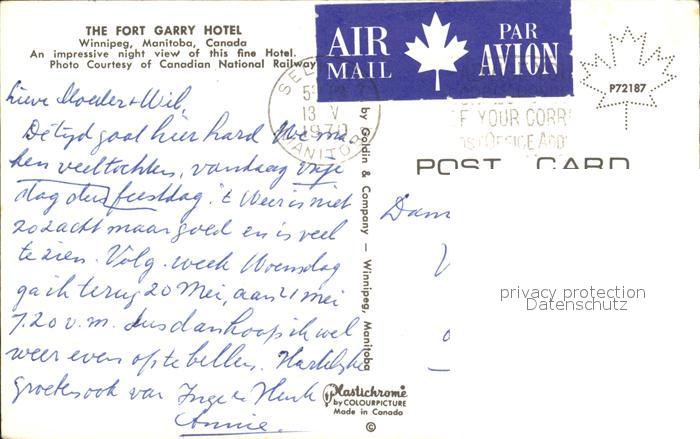 THE FORT GARRY HOTEL
Winnipeg, Manitoba, Canada
An impressive night view of this fine Hotel.
Photo Courtesy of Canadian National Railway
Lieve Moeder + Wil,
De tijd gaat hier hard We ma-
ken veel tochten, vandaag vrije
dag dus feestdag. 't Weer is niet
zo zacht maar goed en is veel
te zien. Volg. week Woensdag
ga ik terug 20 Mei, aan 21 mei
7.20 v.m. dus dan hoop ik wel
weer even op te bellen. Hartelijke
groeten ook van Inge en Henk
Annie.
AIR MAIL
PAR AVION
SEL
13 V
1970
MANITOBA
YOUR CORR
P72187
by Goldin & Company — Winnipeg, Manitoba
POST CARD
Dam
privacy protection
Datenschutz
Plastichrome
by COLOURPICTURE
Made in Canada
©